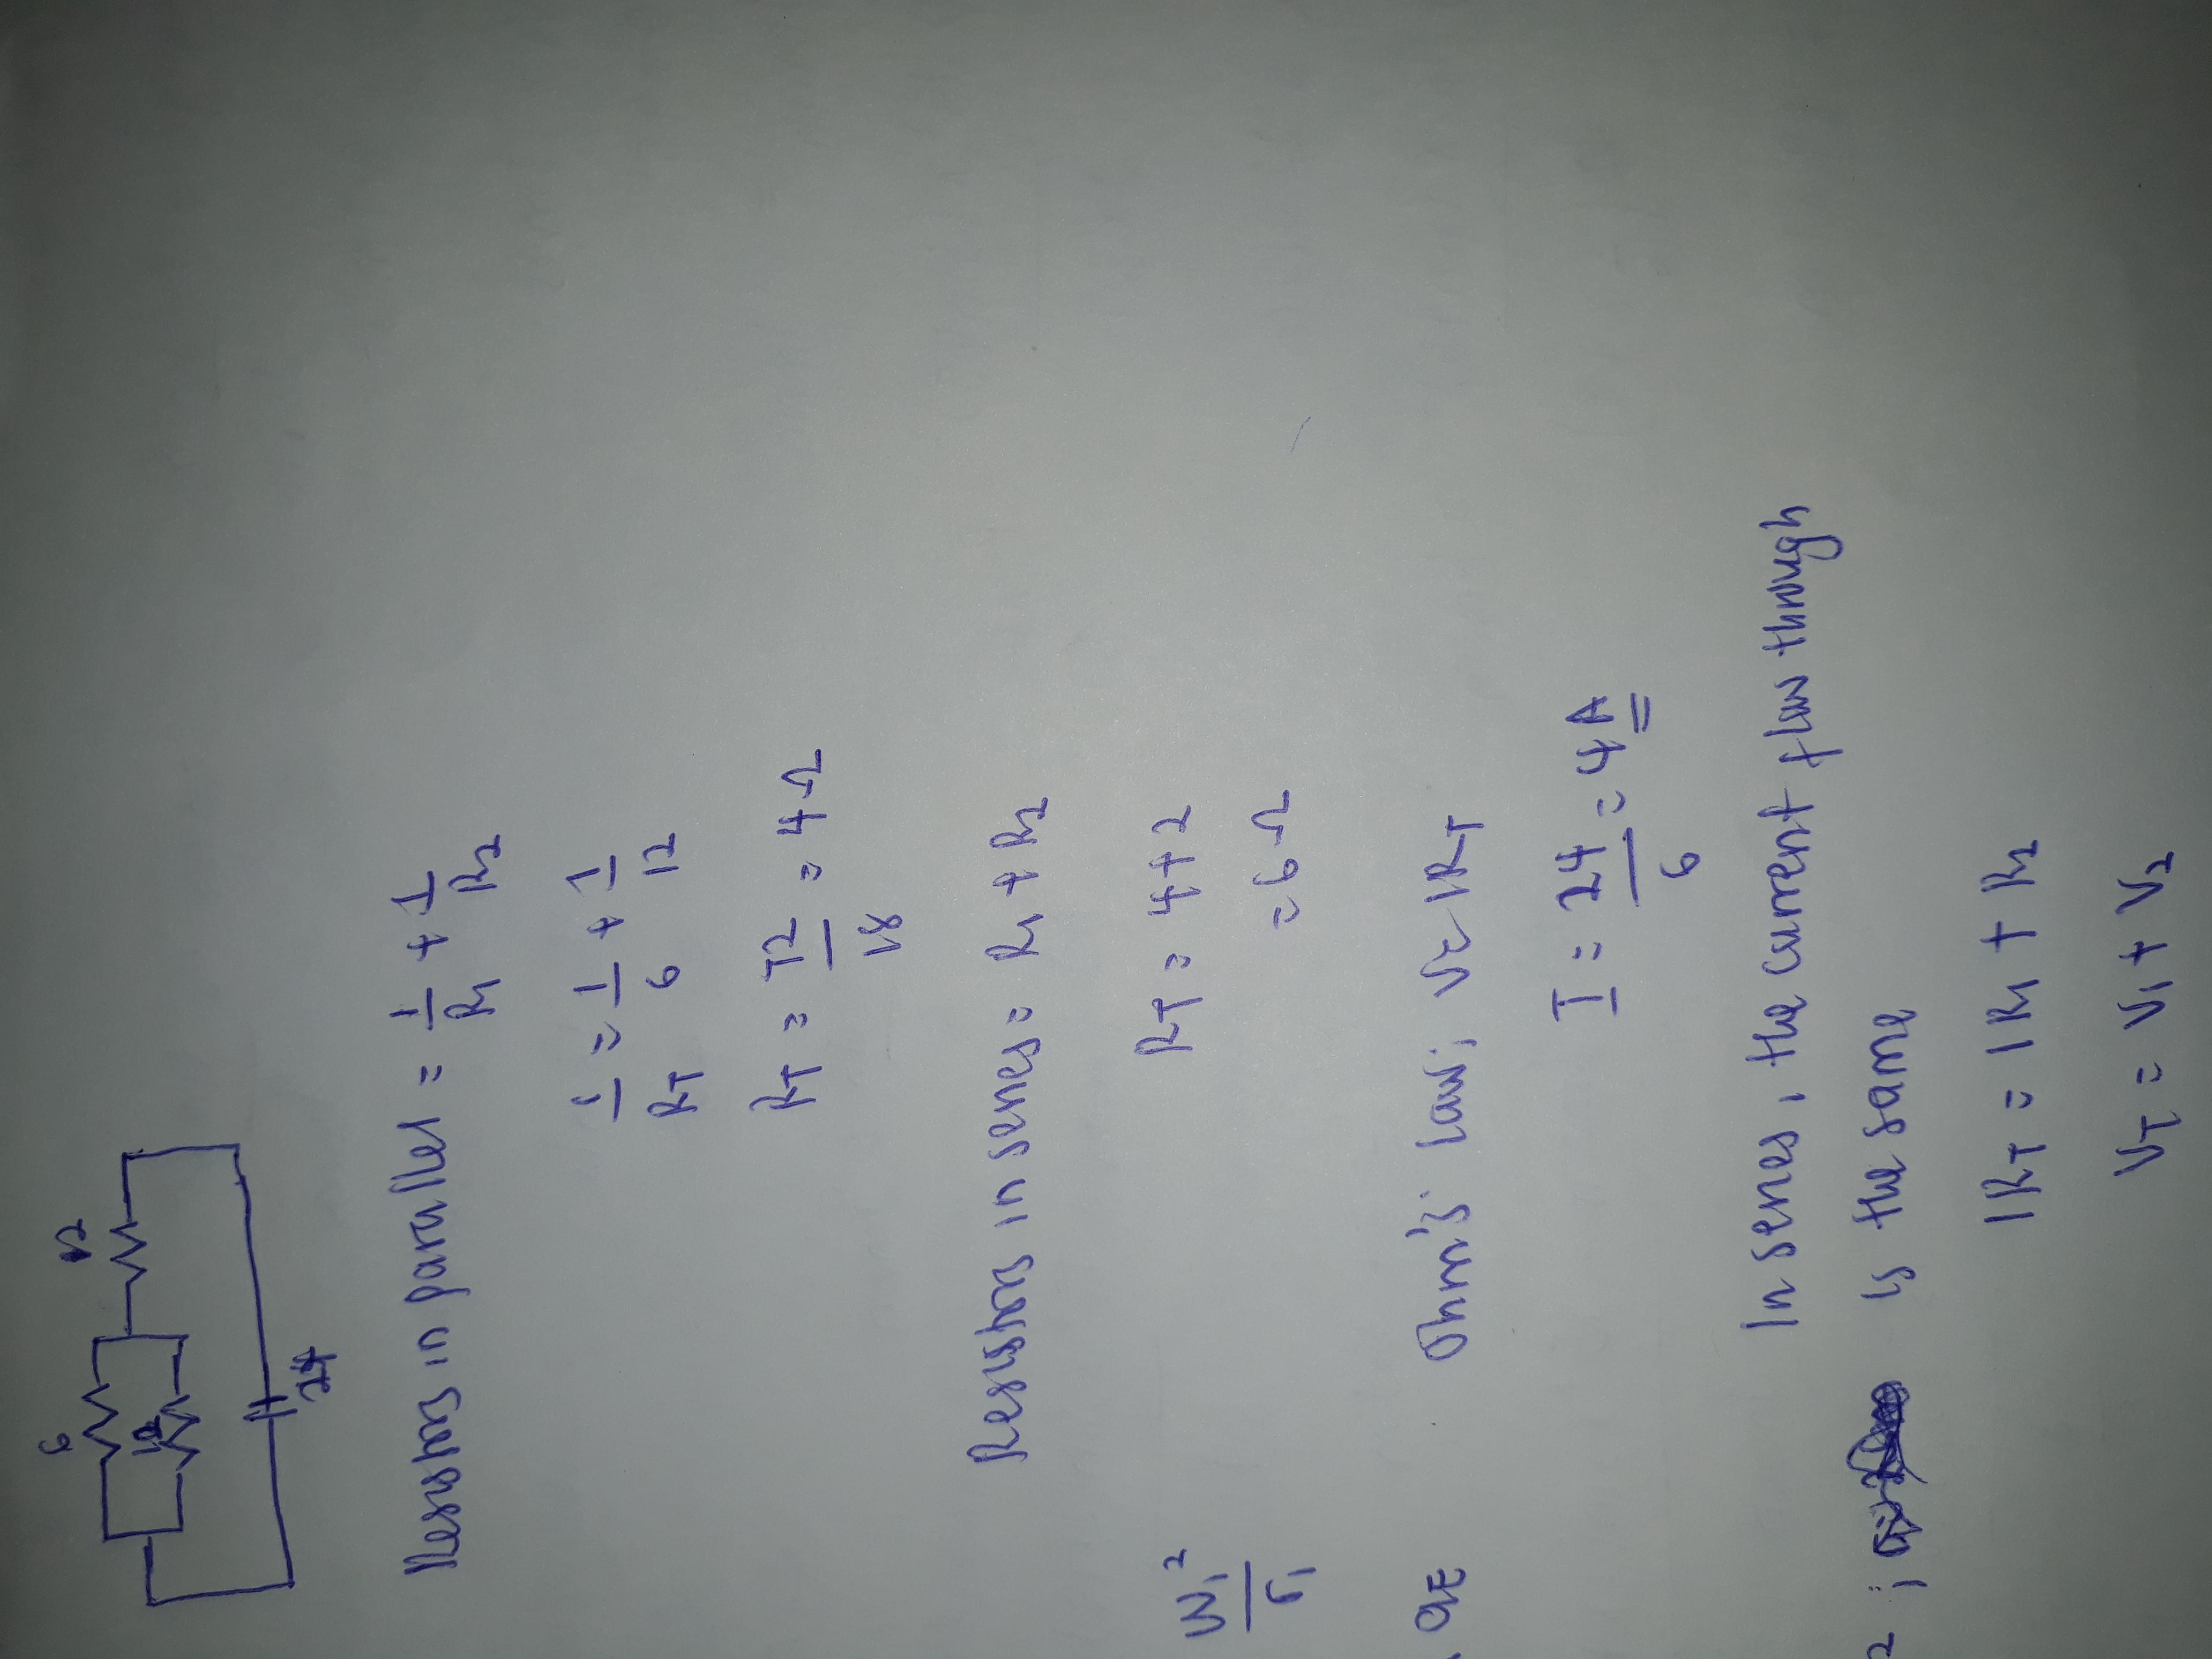 6
2
12
24
Resistors in parallel = 1/R1 + 1/R2
1/RT = 1/6 + 1/12
RT = 72/18 = 4Ω
Resistors in series = R1 + R2
RT = 4+2
= 6Ω
Ohm's law; V = IRT
I = 24/6 = 4A
In series, the current flow through
is the same
IRT = IR1 + R2
VT = V1 + V2
QE
2 ;